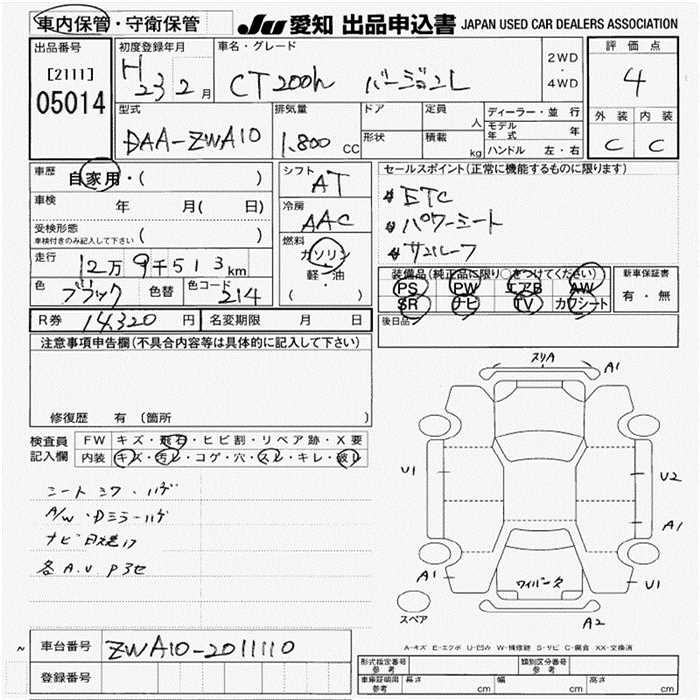 車内保管・守衛保管
JU 愛知 出品申込書 JAPAN USED CAR DEALERS ASSOCIATION
出品番号
[2111]
05014
初度登録年月
H 23 2月
車名・グレード
CT200h バージョンL
2WD
・
4WD
評価点
4
外装 内装
C C
型式
DAA-ZWA10
排気量
1,800 CC
ドア
形状
定員 人
積載 kg
ディーラー・並行
モデル年式 年
ハンドル 左・右
車歴 自家用・( )
車検 年 月( 日)
受検形態
車検付きのみ記入して下さい ( )
走行 12万9千513km
色 ブラック 色替 色コード 214
シフト AT
冷房 AAC
燃料
ガソリン
軽・油
( ・ )
セールスポイント(正常に機能するものに限ります)
# ETC
# パワーシート
# サンルーフ
装備品(純正品に限り○をつけてください)
PS PW エアB AW
SR ナビ TV カワシート
新車保証書
有・無
後日品
R券 14,320円 名変期限 月 日
注意事項申告欄(不具合内容等は具体的に記入して下さい)
修復歴 有(箇所 )
検査員記入欄
FW キズ・飛石・ヒビ割・リペア跡・X要
内装 キズ・汚レ・コゲ・穴・スレ・キレ・破レ
シート シワ・ハゲ
A/W・Dミラーハゲ
各A.U P3セ
スリA A1
U1 U2
A1
A1 U1
ワイパー欠
スペア
A2
A-キズ E-エクボ U-凹み W-補修跡 S-サビ C-腐食 XX-交換済
車台番号 ZWA10-2011110
登録番号
形式指定番号 参考 類別区分番号 参考
車庫証明用 参考 長さ cm 幅 cm 高さ cm